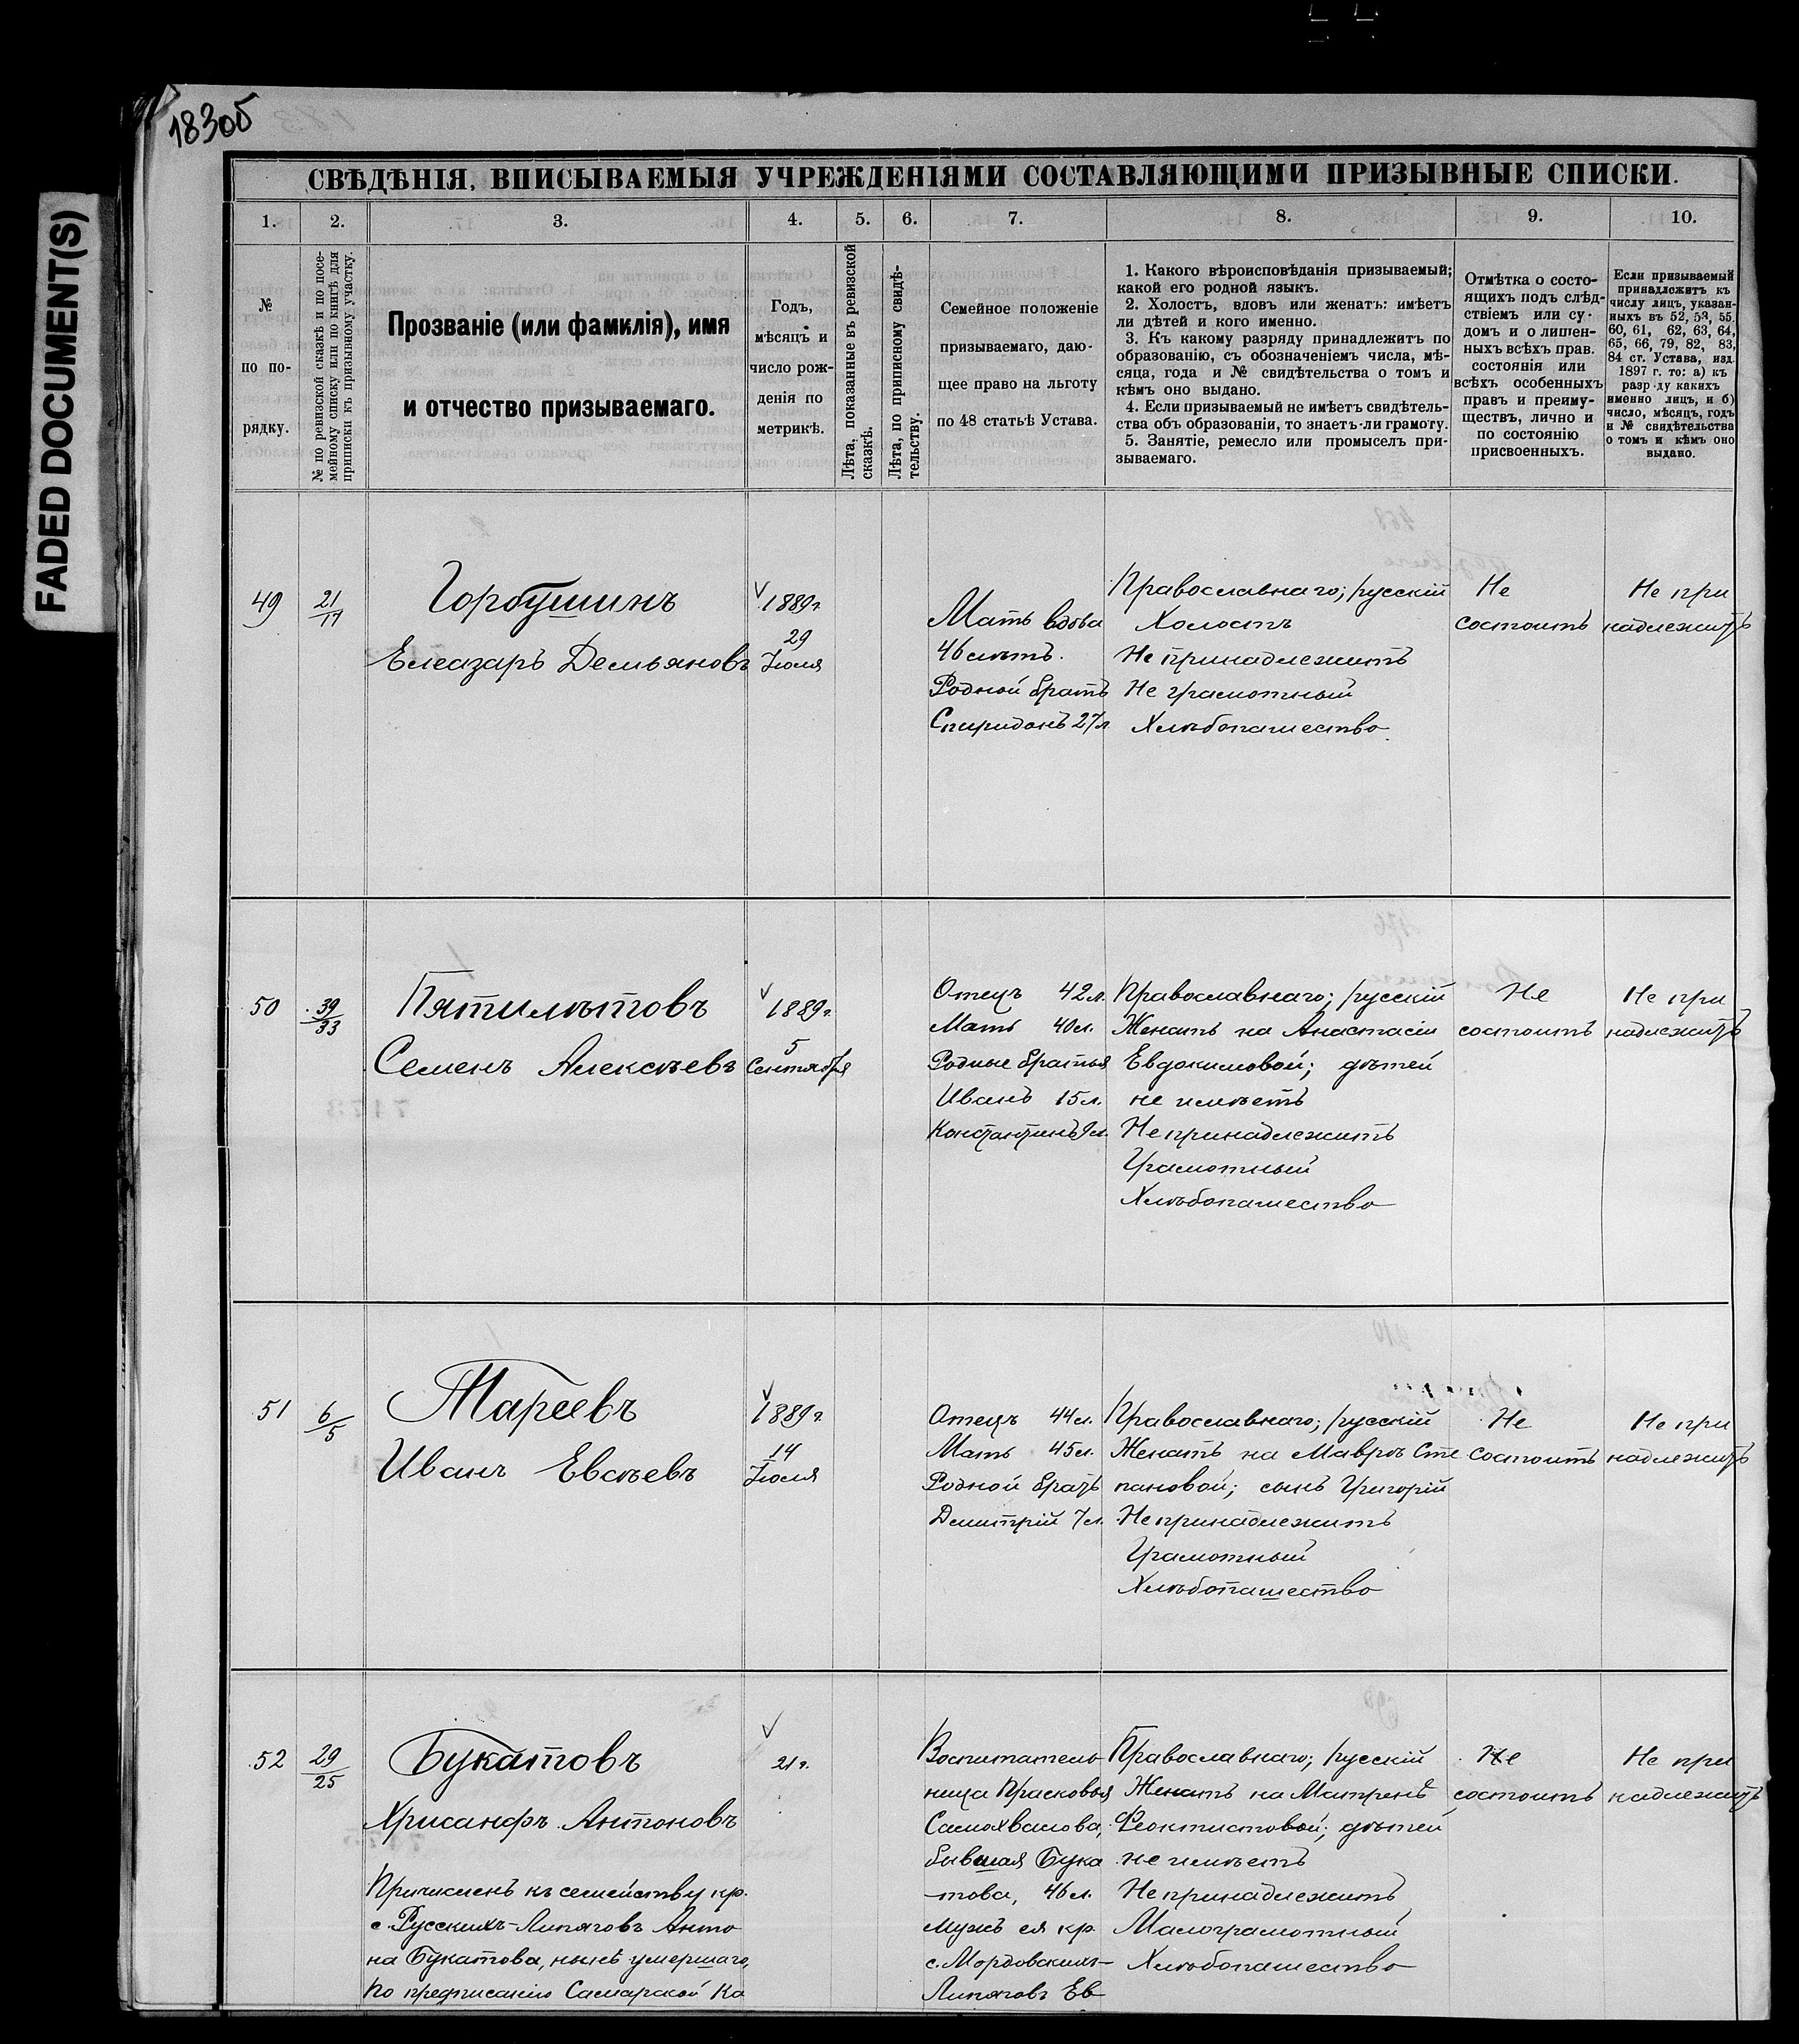 183об
FADED DOCUMENT(S)
СВѢДѢНІЯ, ВПИСЫВАЕМЫЯ УЧРЕЖДЕНІЯМИ СОСТАВЛЯЮЩИМИ ПРИЗЫВНЫЕ СПИСКИ.
1.
2.
3.
4.
5.
6.
7.
8.
9.
10.
№
по по-
рядку.
№ по ревизской сказкѣ и по посе-
мейному списку или по книгѣ для
приписки къ призывному участку.
Прозваніе (или фамилія), имя
и отчество призываемаго.
Годъ,
мѣсяцъ и
число рож-
денія по
метрикѣ.
Лѣта, показанные въ ревизской
сказкѣ.
Лѣта, по приписному свидѣ-
тельству.
Семейное положеніе
призываемаго, даю-
щее право на льготу
по 48 статьѣ Устава.
1. Какого вѣроисповѣданія призываемый;
какой его родной языкъ.
2. Холостъ, вдовъ или женатъ: имѣетъ
ли дѣтей и кого именно.
3. Къ какому разряду принадлежитъ по
образованію, съ обозначеніемъ числа, мѣ-
сяца, года и № свидѣтельства о томъ и
кѣмъ оно выдано.
4. Если призываемый не имѣетъ свидѣтель-
ства объ образованіи, то знаетъ-ли грамоту.
5. Занятіе, ремесло или промыселъ при-
зываемаго.
Отмѣтка о состо-
ящихъ подъ слѣд-
ствіемъ или су-
домъ и о лишен-
ныхъ всѣхъ прав.
состоянія или
всѣхъ особенныхъ
правъ и преиму-
ществъ, лично и
по состоянію
присвоенныхъ.
Если призываемый
принадлежитъ къ
числу лицъ, указан-
ныхъ въ 52, 53, 55,
60, 61, 62, 63, 64,
65, 66, 79, 82, 83,
84 ст. Устава, изд.
1897 г. то: а) къ
разр ду какихъ
именно лицъ, и б)
число, мѣсяцъ, годъ
и № свидѣтельства
о томъ и кѣмъ оно
выдано.
49
21/17
Горбушинъ
Елеазаръ Демьяновъ
1889г.
29
Іюля
Мать вдова
46 лѣтъ.
Родной братъ
Спиридонъ 27л
Православнаго; русскій
Холостъ
Не принадлежитъ
Не грамотный
Хлѣбопашество
Не
состоитъ
Не при
надлежитъ
50
39/33
Пятилѣтовъ
Семенъ Алексѣевъ
1889г.
5
Сентября
Отецъ 42л.
Мать 40л.
Родные братья
Иванъ 15л.
Константинъ 9л.
Православнаго; русскій
Женатъ на Анастасіи
Евдокимовой; дѣтей
не имѣетъ
Не принадлежитъ
Грамотный
Хлѣбопашество
Не
состоитъ
Не при
надлежитъ
51
6/5
Мареевъ
Иванъ Евсѣевъ
1889г.
14
Іюля
Отецъ 44л.
Мать 45л.
Родной братъ
Дмитрій 7л.
Православнаго; русскій
Женатъ на Маврѣ Сте
пановой; сынъ Григорій
Не принадлежитъ
Грамотный
Хлѣбопашество
Не
состоитъ
Не при
надлежитъ
52
29/25
Букатовъ
Хрисанфъ Антоновъ
Причисленъ къ семейству кр.
с. Русскихъ-Липяговъ Анто
на Букатова, нынѣ умершаго,
по предписанію Самарской Ка
21г.
Воспитатель-
ница Прасковья
Самохвалова,
бывшая Бука
-това, 46л.
мужъ ея кр.
с. Мордовскихъ-
Липяговъ Ев
Православнаго; русскій
Женатъ на Матренѣ
Феоктистовой; дѣтей
не имѣетъ
Не принадлежитъ
Малограмотный
Хлѣбопашество
Не
состоитъ
Не при
надлежитъ